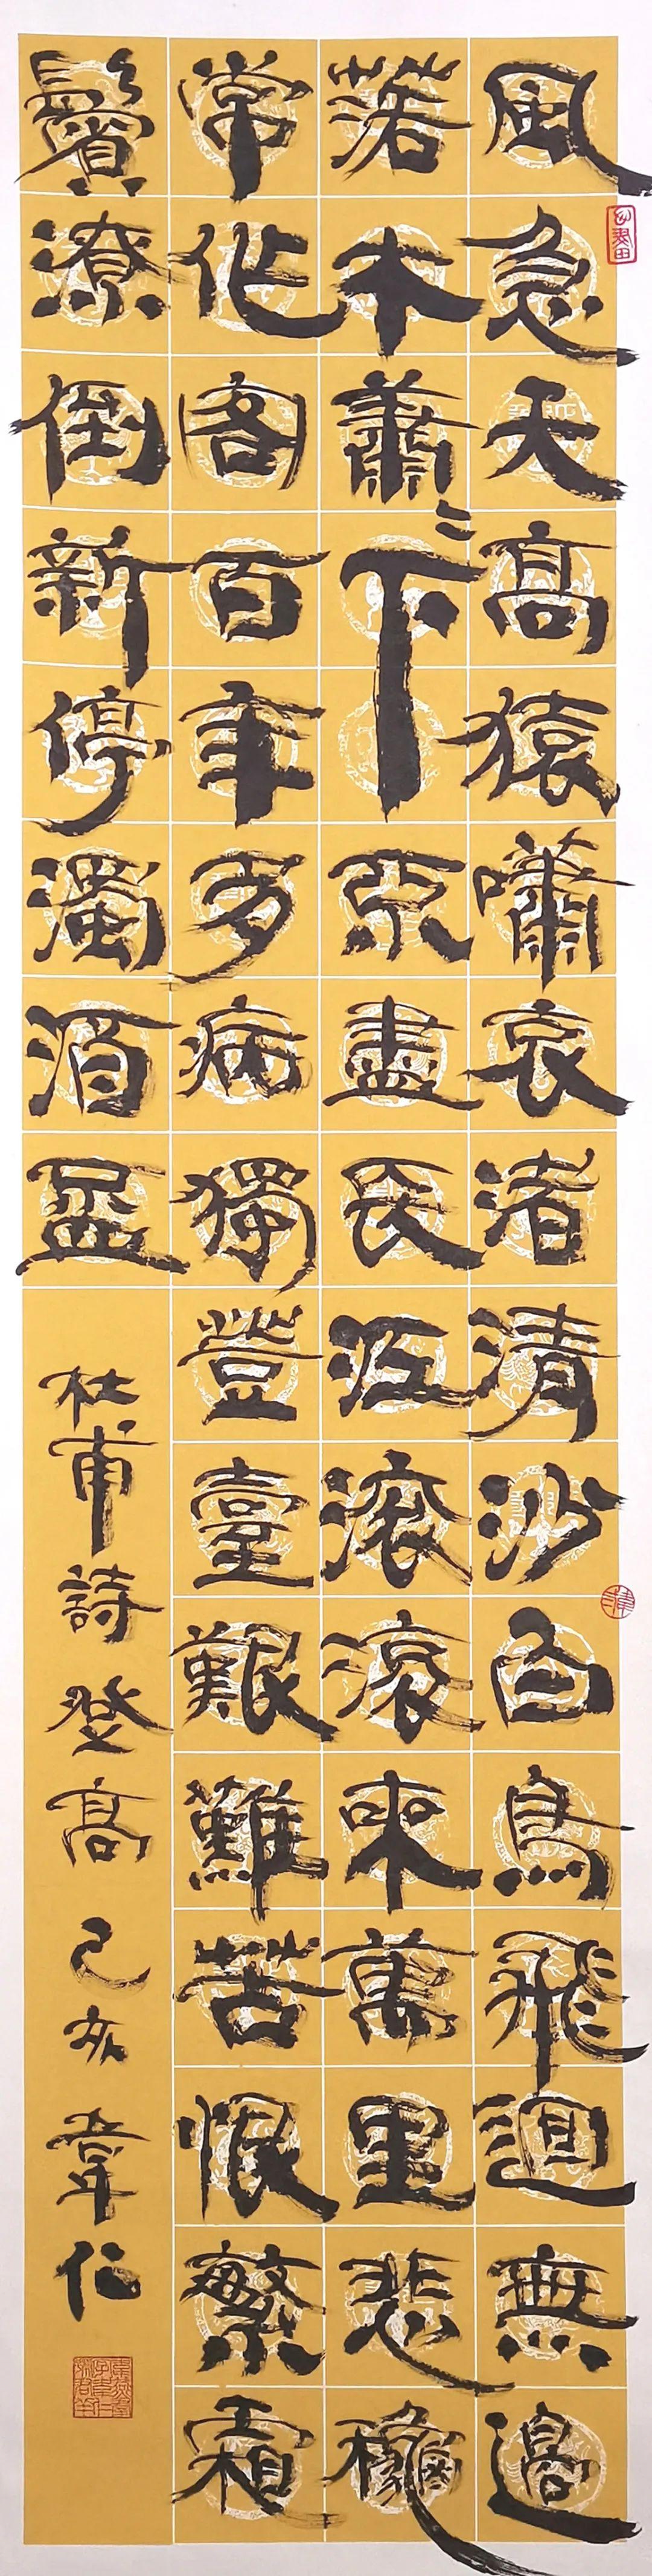 風急天高猿嘯哀渚清沙白鳥飛迴無邊
落木蕭〻下不盡長江滾滾來萬里悲龝
常作客百年多病獨登臺艱難苦恨繁霜
鬢潦倒新停濁酒盃
杜甫詩登高 己亥 韋仁